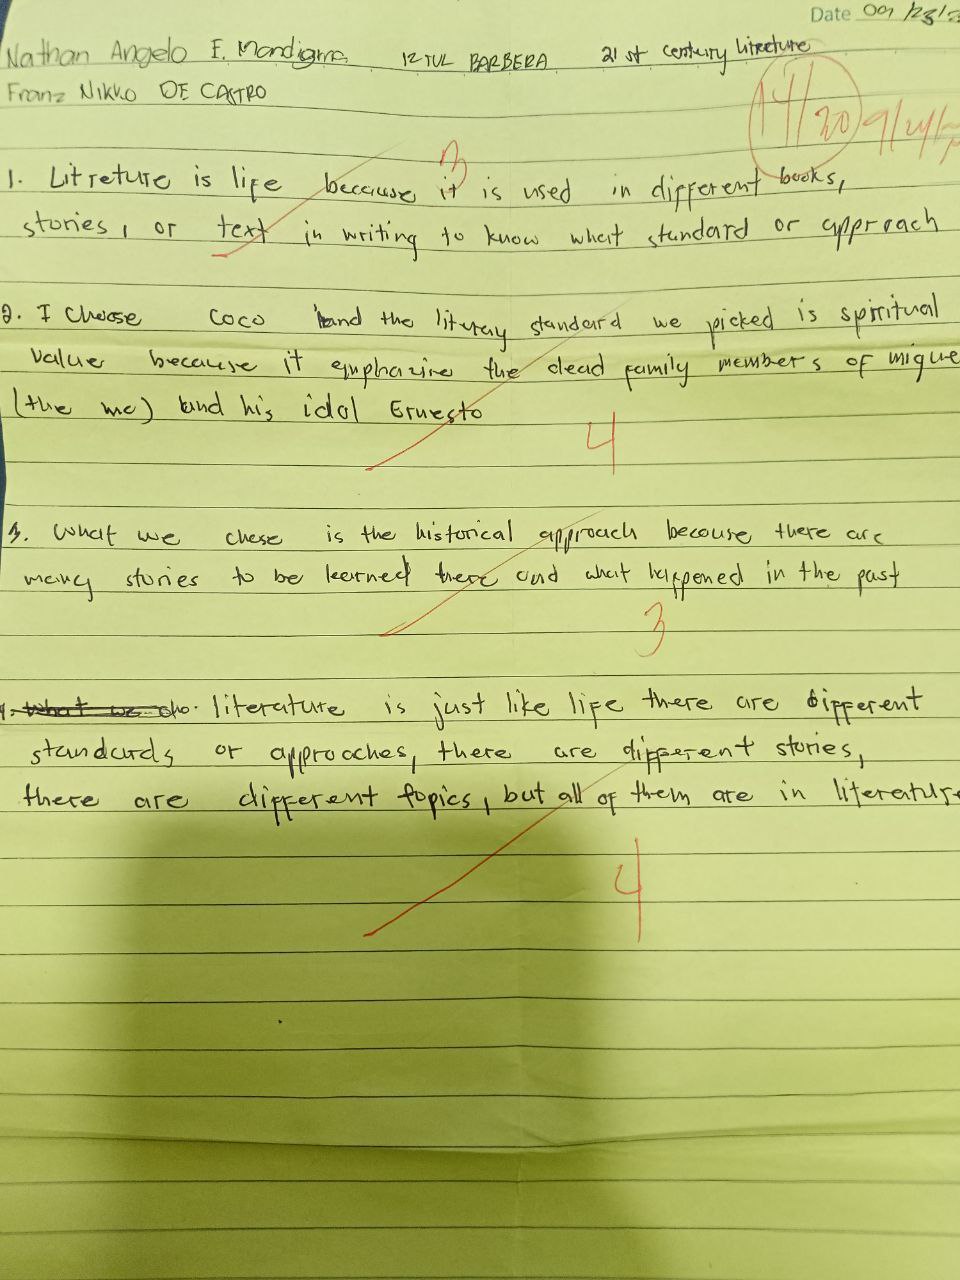 Date 09/23/2
Nathan Angelo E. Mandigma 12 TUL BARBERA 21st century litreture
Franz Nikko DE CASTRO
14/20
1. Litreture is life because it is used in different books,
3
stories, or text in writing to know what standard or approach
2. I choose coco and the literay standard we picked is spiritual
value because it emphazine the dead family members of migue
(the mc) and his idol Ernesto
4
3. What we chose is the historical approach because there are
many stories to be learned there and what happened in the past
3
4. What we cho. literature is just like life there are different
standards or approaches, there are different stories,
there are different topics, but all of them are in literature
4